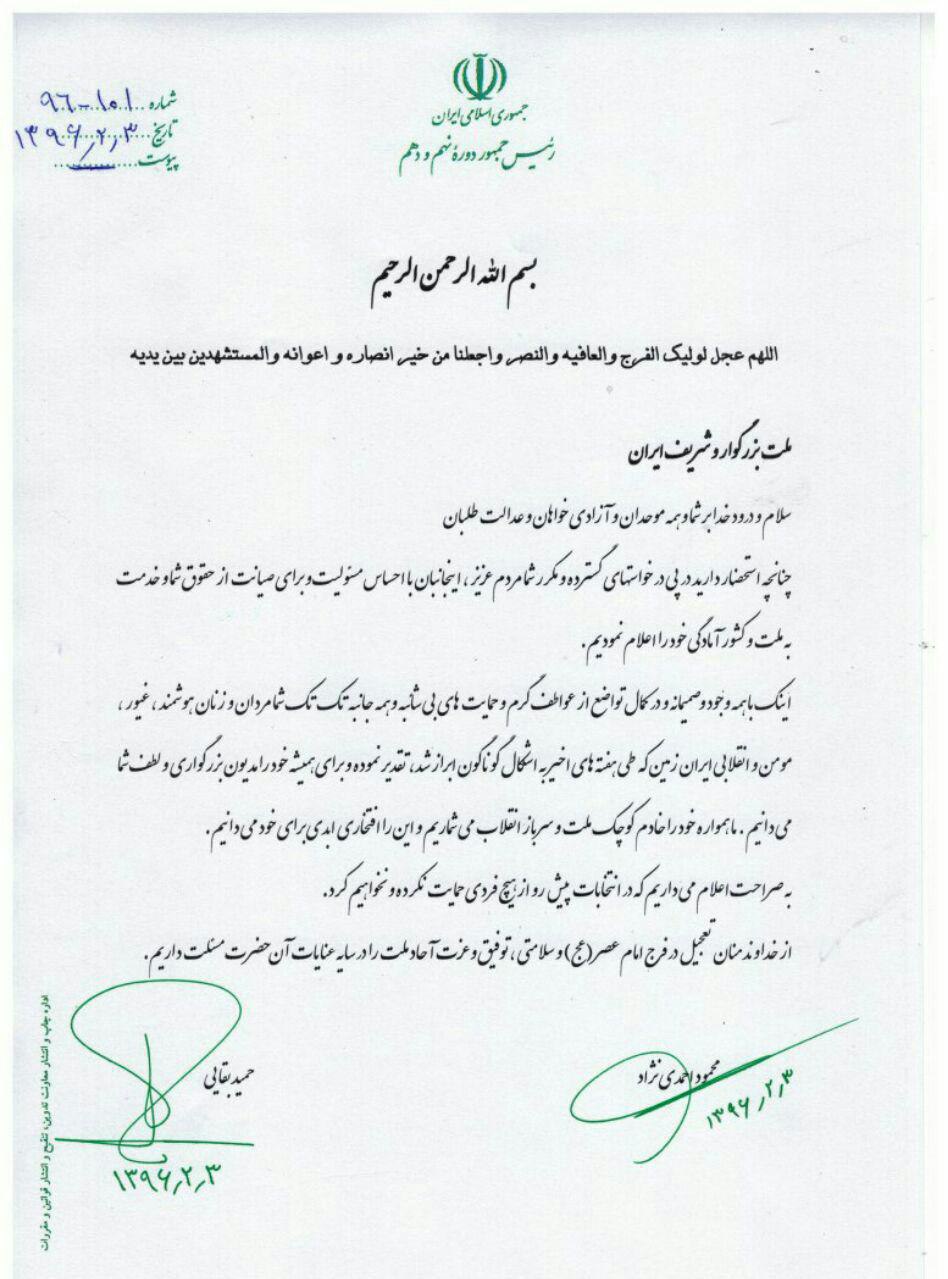 جمهوری اسلامی ایران
رئیس جمهور دورهٔ نهم و دهم
شماره ۹۶-۱۰۱
تاریخ ۱۳۹۶٫۲٫۳
پیوست
بسم الله الرحمن الرحیم
اللهم عجل لولیک الفرج والعافیه والنصر واجعلنا من خیر انصاره و اعوانه والمستشهدین بین یدیه
ملت بزرگوار و شریف ایران
سلام و درود خدا بر شما و همه موحدان و آزادی خواهان و عدالت طلبان
چنانچه استحضار دارید در پی درخواستهای گسترده و مکرر شما مردم عزیز، اینجانبان با احساس مسئولیت و برای صیانت از حقوق شما و خدمت
به ملت و کشور آمادگی خود را اعلام نمودیم.
اینک با همه وجود و صمیمانه و در کمال تواضع از عواطف گرم و حمایت های بی شائبه و همه جانبه تک تک شما مردان و زنان هوشمند، غیور،
مومن و انقلابی ایران زمین که طی هفته های اخیر به اشکال گوناگون ابراز شد، تقدیر نموده و برای همیشه خود را مدیون بزرگواری و لطف شما
می دانیم. ما همواره خود را خادم کوچک ملت و سرباز انقلاب می شماریم و این را افتخاری ابدی برای خود می دانیم.
به صراحت اعلام می داریم که در انتخابات پیش رو از هیچ فردی حمایت نکرده و نخواهیم کرد.
از خداوند منان تعجیل در فرج امام عصر(عج) و سلامتی، توفیق و عزت آحاد ملت را در سایه عنایات آن حضرت مسئلت داریم.
محمود احمدی نژاد
۱۳۹۶٫۲٫۳
حمید بقایی
۱۳۹۶٫۲٫۳
اداره چاپ و انتشار معاونت تدوین، تنقیح و انتشار قوانین و مقررات